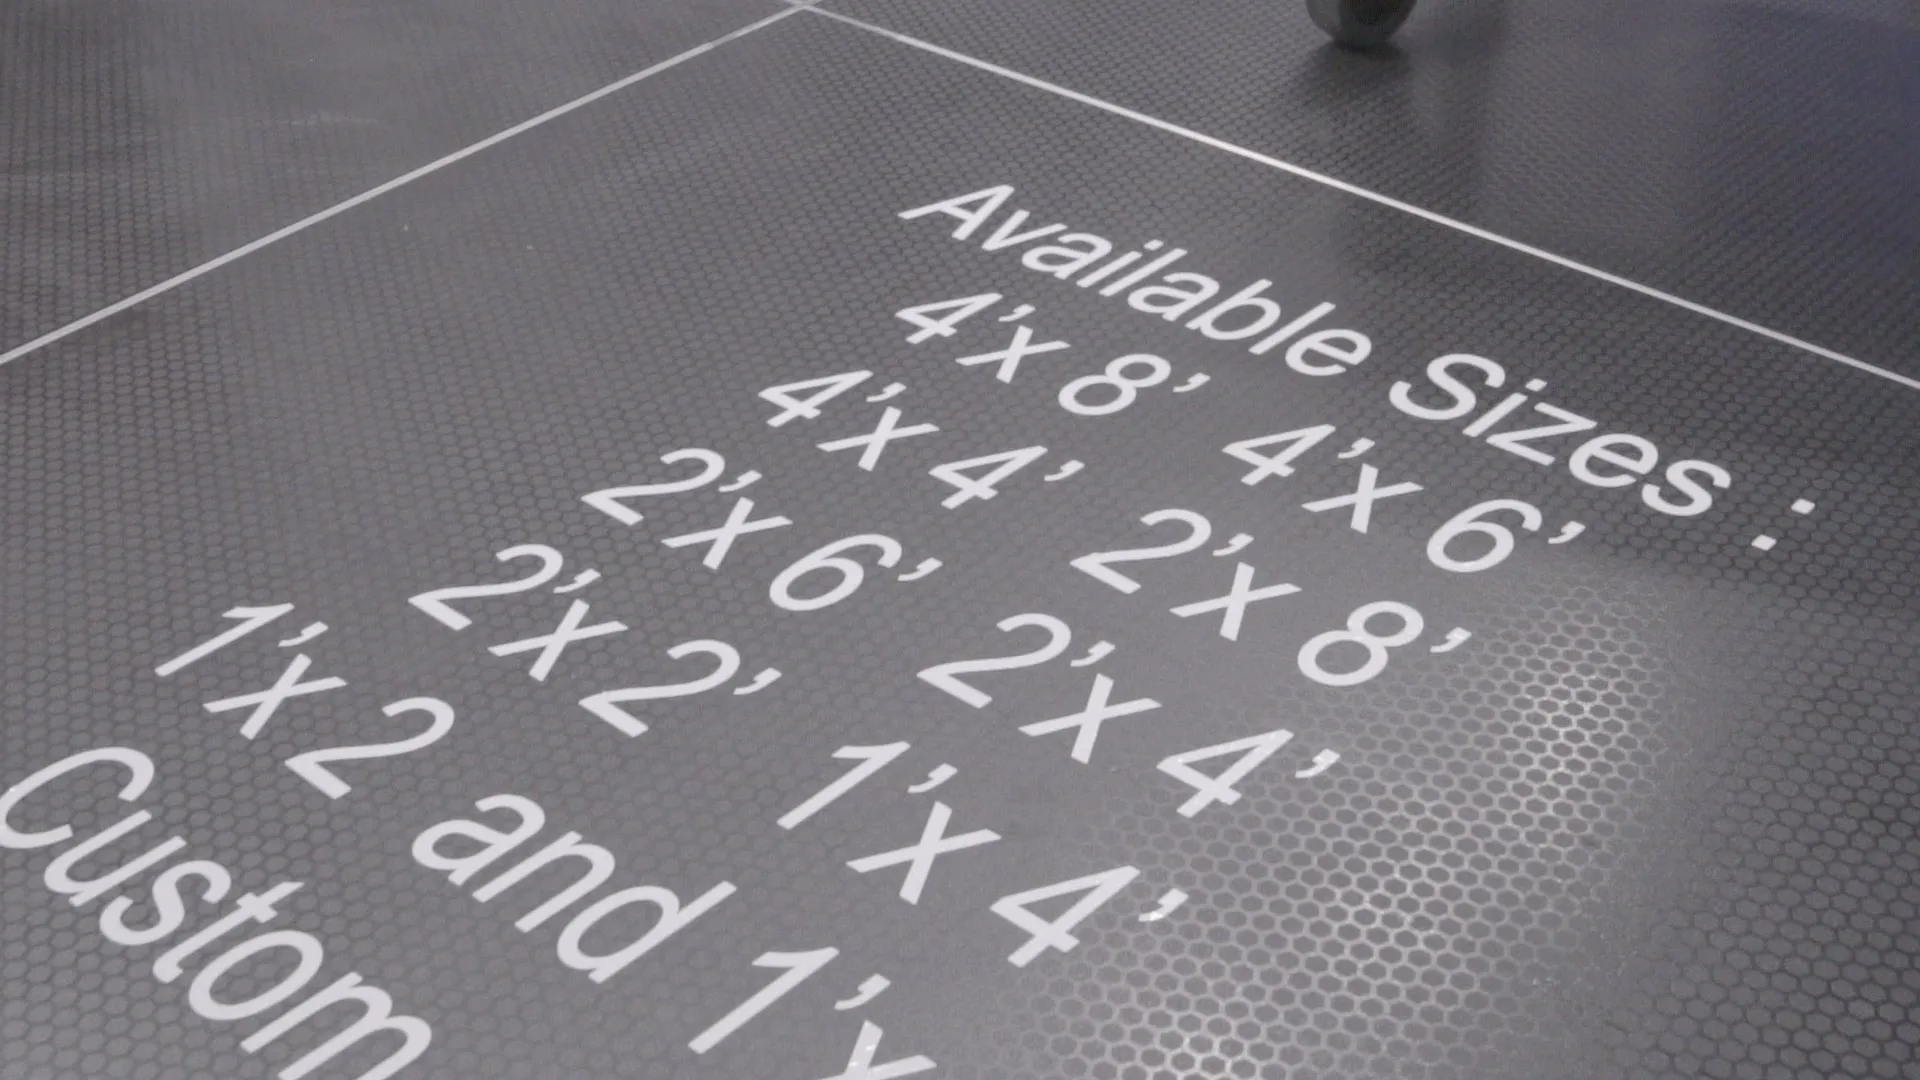 Available Sizes :
4’x 8’ 4’x 6’
4’x 4’ 2’x 8’
2’x 6’ 2’x 4’
2’x 2’ 1’x 4’
1’x 2 and 1’x
Custom